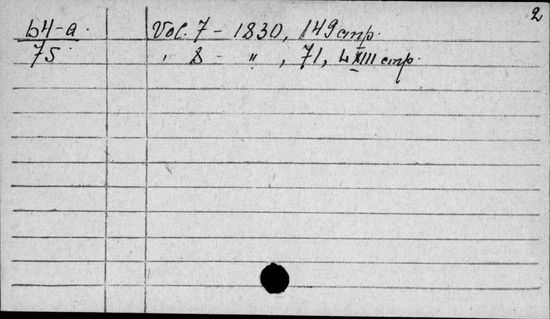 2
64-a. Vol. 7 - 1830, 149 стр.
75 " 8 - " , 71, LXIII стр.